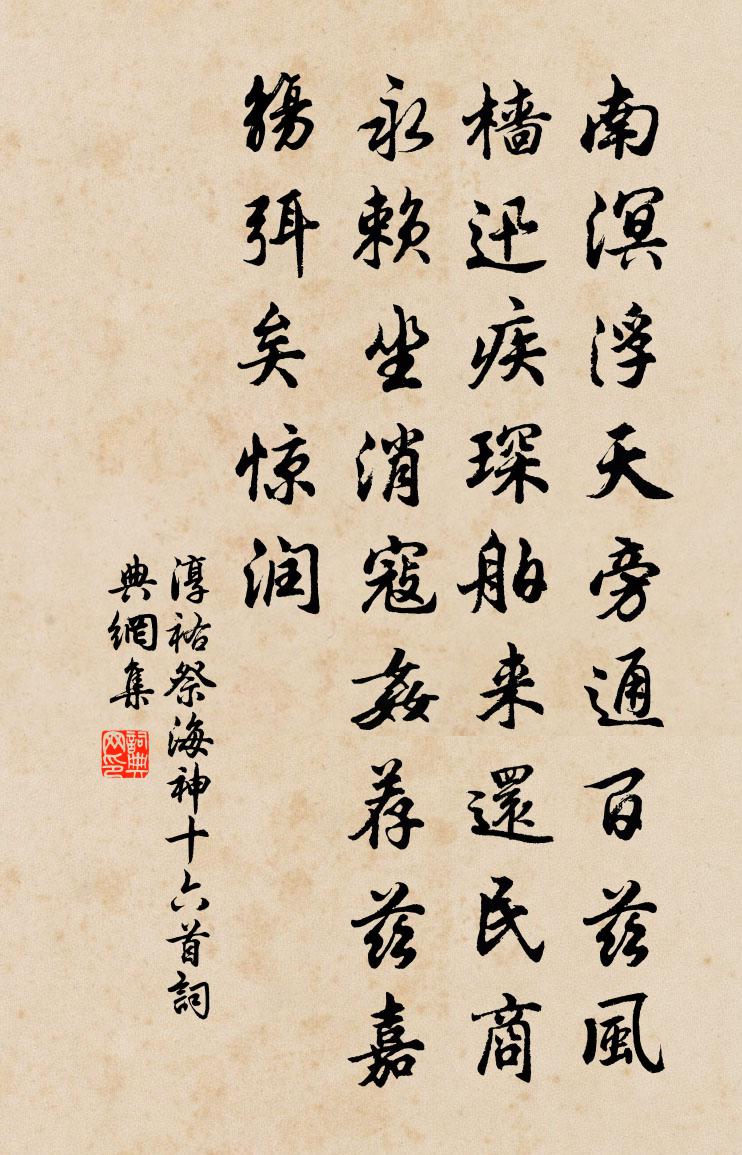 南溟浮天旁通百兹風
檣迅疾琛舶来還民商
永赖坐消寇姦荐兹嘉
觴弭矣惊润
淳祐祭海神十六首詞
典網集
詞典
网印